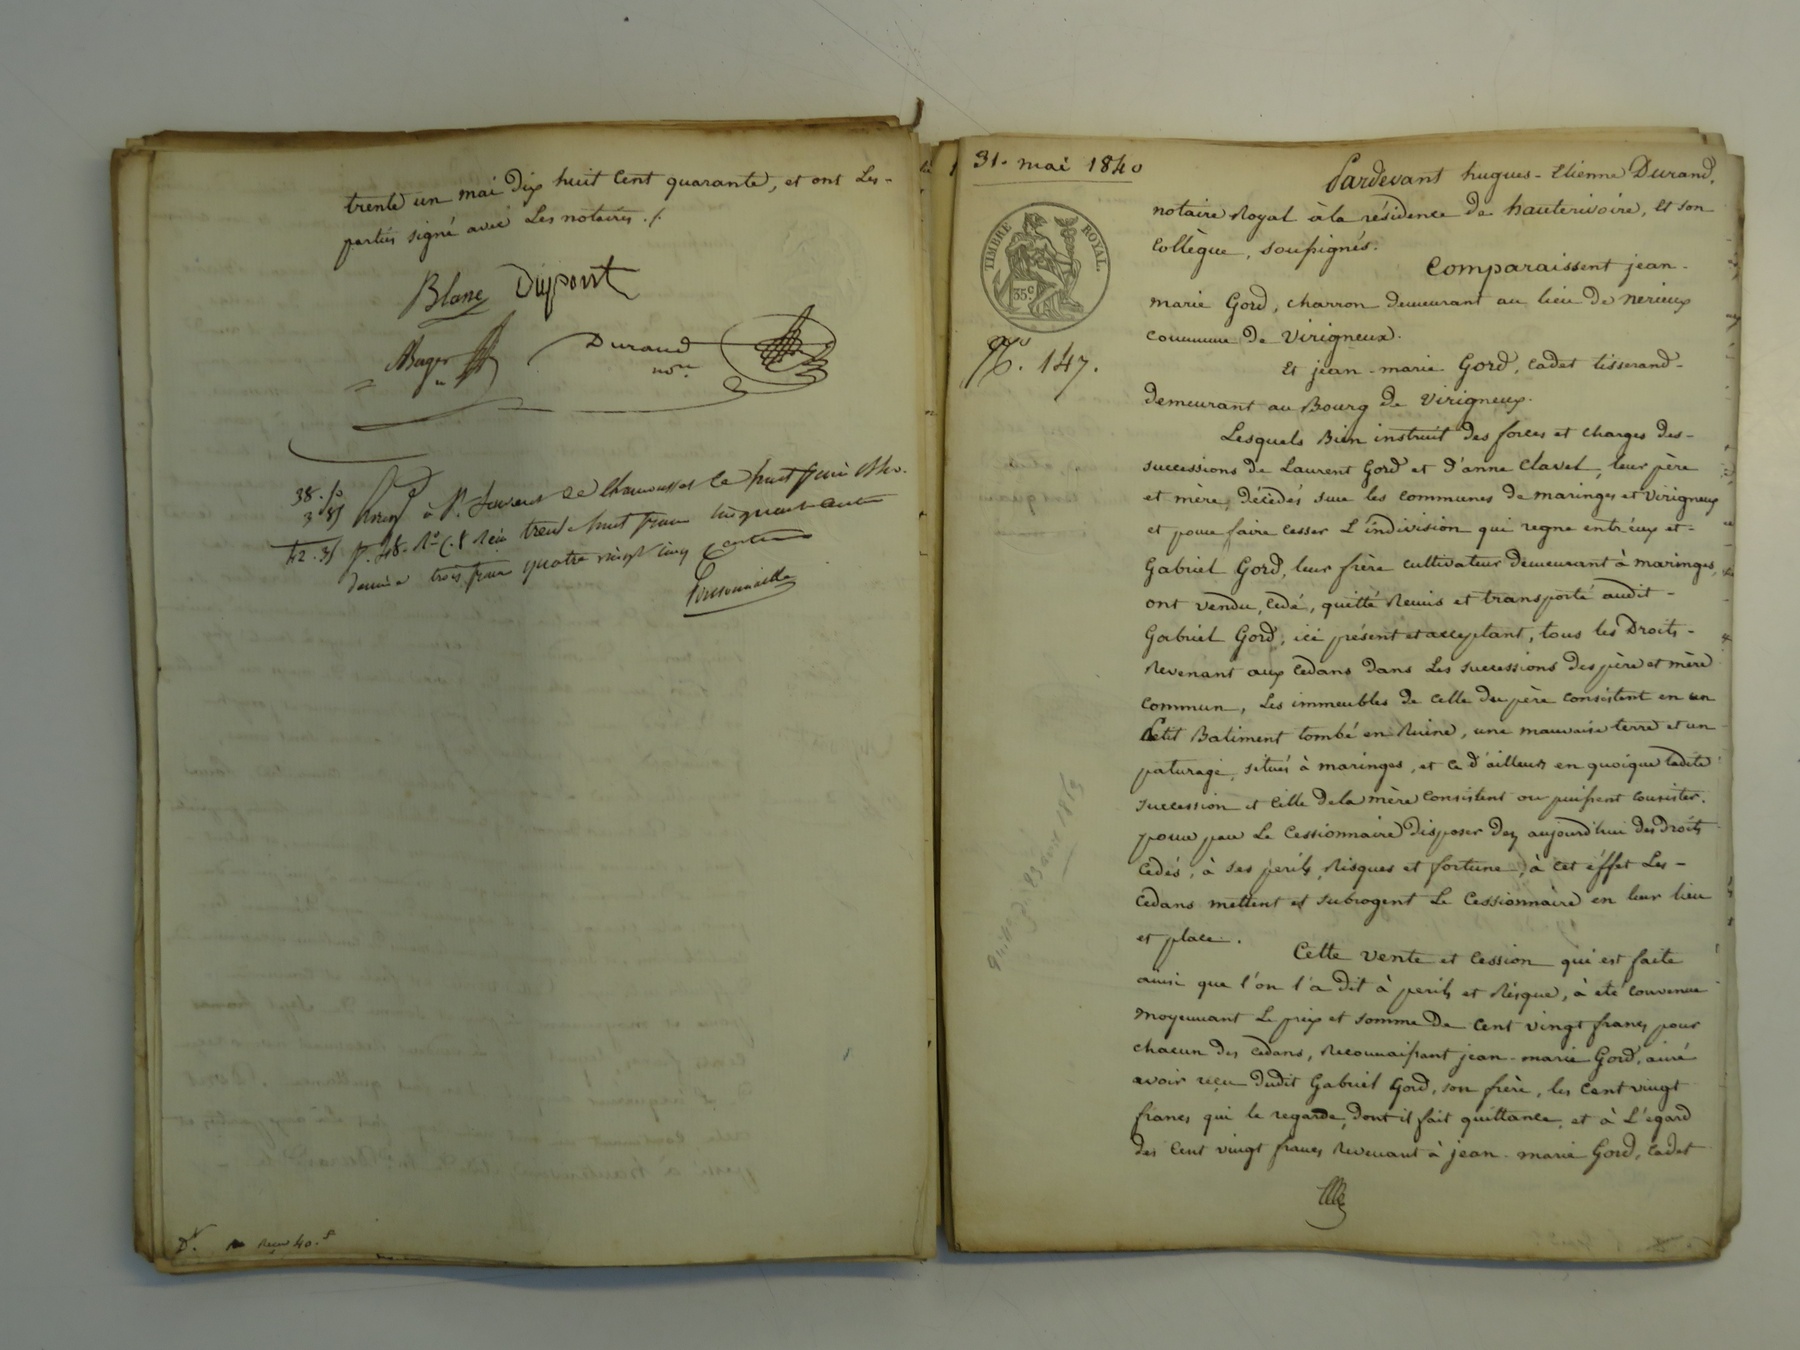 trente un mai dix huit cent quarante, et ont Les-
parties signé avec Les notaires ./.
Blanc Dupont
Durand
nore
38.50
3.85
42.35
à St. Laurent de Chamousset le huit juin 1840.
reçu trente huit francs cinquante centimes
trois francs quatre vingt cinq centimes
reçu 40.f
31. mai 1840
TIMBRE ROYAL.
35c
No. 147.
Pardevant hugues-Etienne Durand,
notaire Royal à la résidence de hauterivoire, et son
Collègue, soussignés.
Comparaissent jean-
marie Gord, charron demeurant au lieu de nerieux
commune de Virigneux.
Et jean-marie Gord, cadet tisserand-
demeurant au Bourg de Virigneux.
Lesquels Bien instruit des forces et charges des-
successions de Laurent Gord et d'anne Clavel, leur père
et mère, décédés sur les communes de maringes et Virigneux
et pour faire cesser L'indivision qui regne entr'eux et-
Gabriel Gord, leur frère cultivateur demeurant à maringes,
ont vendu, cedé, quitté Remis et transporté audit-
Gabriel Gord, ici présent et acceptant, tous les Droits-
Revenant aux cedans dans Les successions des père et mère
commun, Les immeubles de celle du père consistent en un
Petit Batiment tombé en Ruine, une mauvaise terre et un
paturage, situés à maringes, et ce d'ailleurs en quoique ladite
succession et celle de la mère consistent ou puissent consister.
pour par Le Cessionnaire Disposer dez aujourd'hui des Droits
Cédés, à ses perils, Risques et fortune, à cet éffet Les-
Cedans mettent et subrogent Le Cessionnaire en leur lieu
et place.
Cette vente et Cession qui est faite
ainsi que l'on l'a dit à perils et Risque, à eté convenue
moyennant Le prix et somme De Cent vingt francs pour
chacun des cedans, Reconnaissant jean-marie Gord, ainé
avoir reçu dudit Gabriel Gord, son frère, les Cent vingt
francs qui le regarde, Dont il fait quittance, et à L'egard
des Cent vingt francs Revenant à jean-marie Gord, Cadet
23 avril 18